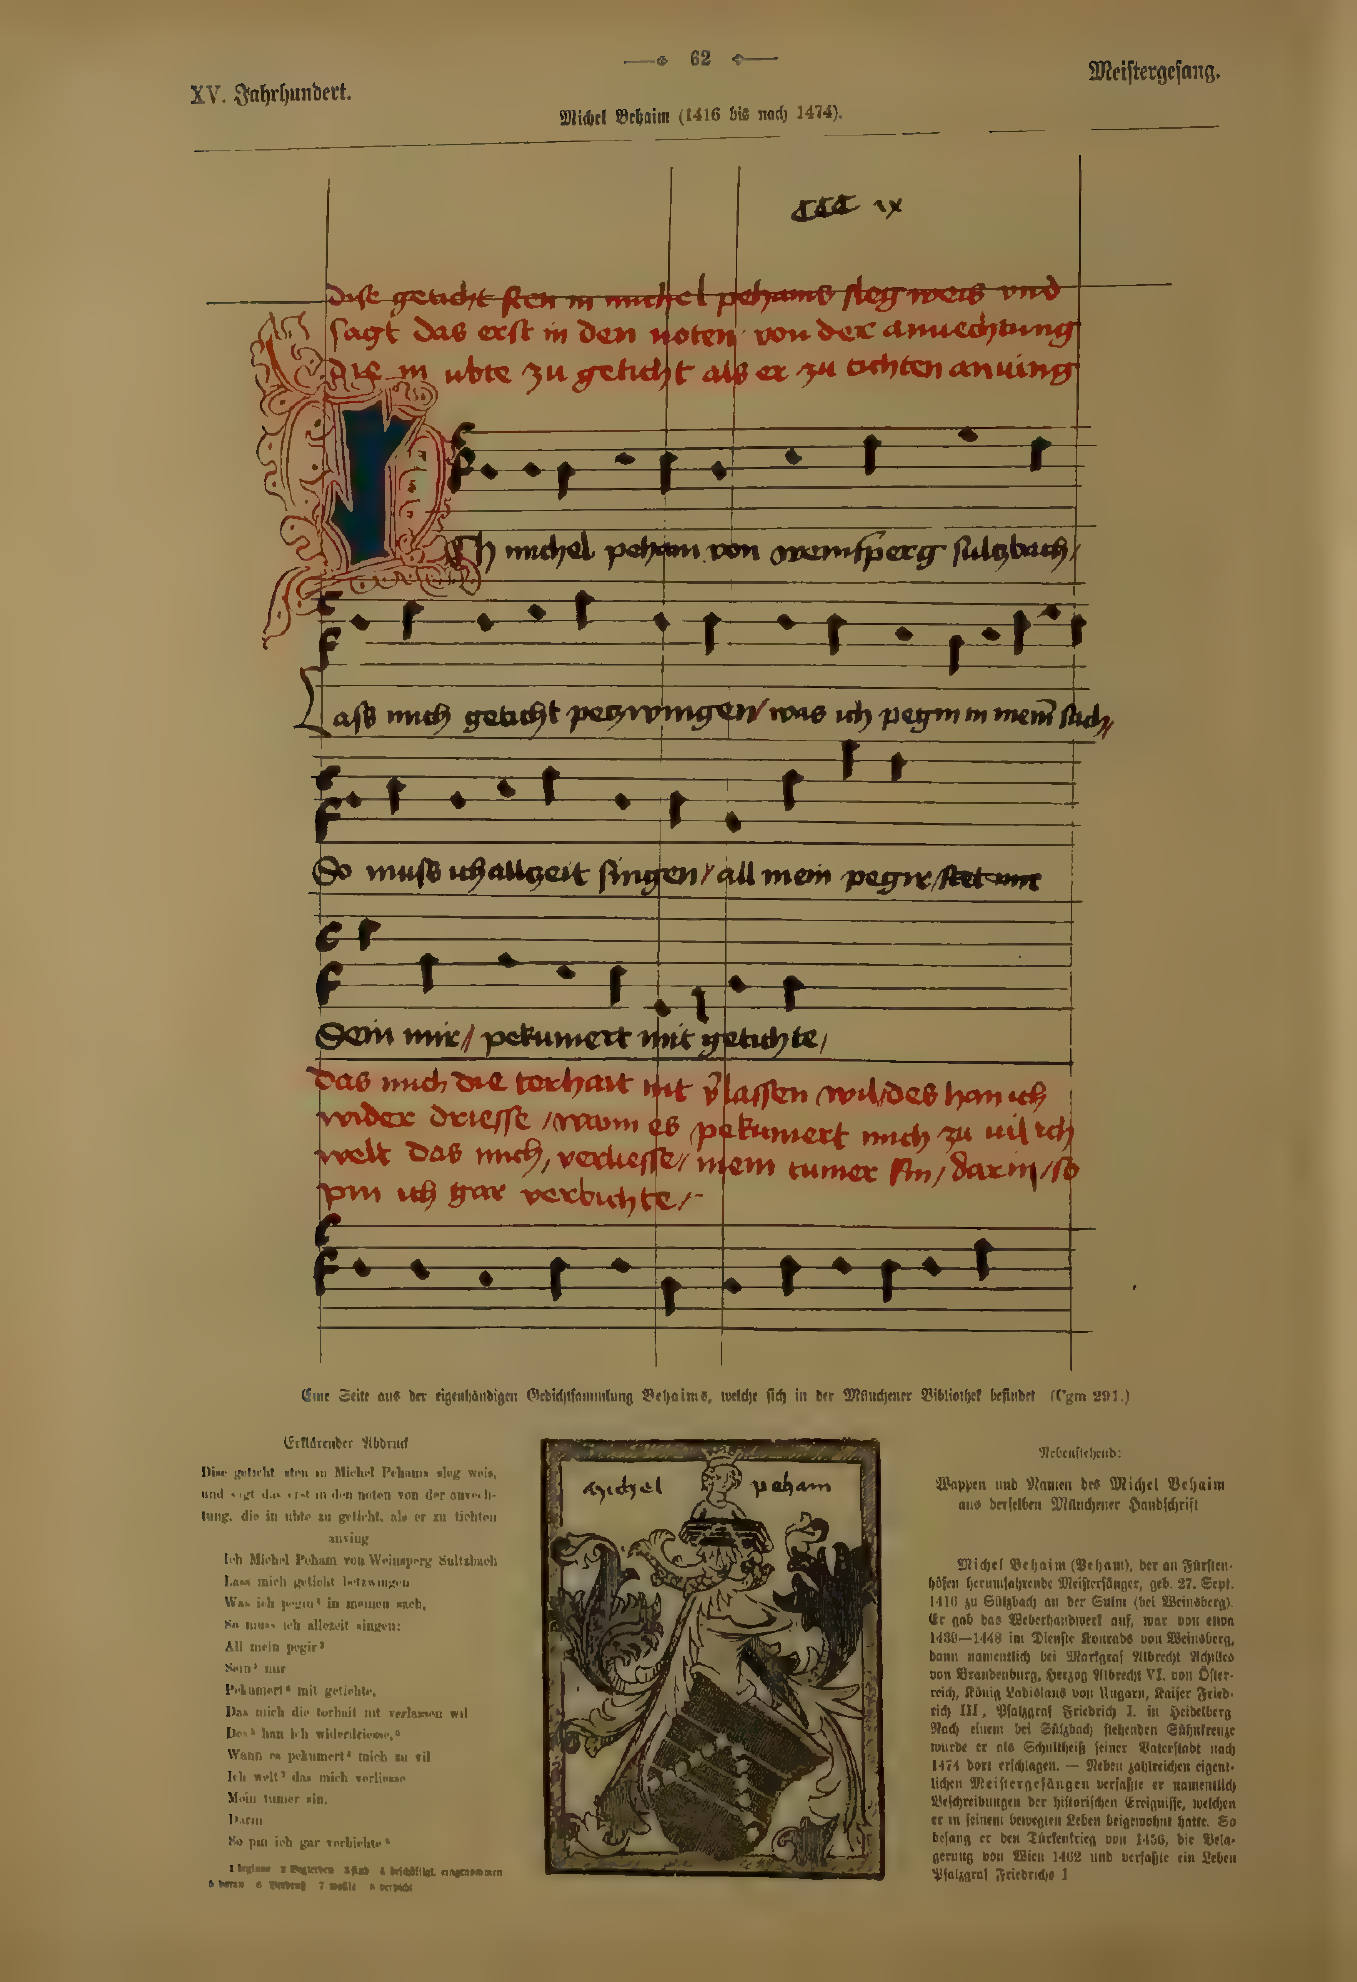 62
XV. Jahrhundert.
Meistergesang.
Michel Behaim (1416 bis nach 1474).
CCC ix
dise geticht sten in michel pehams sleg weis vnd
sagt das erst in den noten von der anuechtung
die in ubte zu geticht als er zu tichten anuing
Ich michel peham von weinsperg sulczbach /
Lass mich geticht peczwingen / was ich pegin in mein sach //
So muss ich allczeit singen / all mein pegir /
Sein mir // pekumert mit getichte /
das mich die torhait nit v̄lassen / wil / des han ich
wider driesse / wann es / pekumert mich zu uil ich
welt das mich / verliesse / mein tumer sin / darin / so
pin ich gar verbichte /
Eine Seite aus der eigenhändigen Gedichtsammlung Behaims, welche sich in der Münchener Bibliothek befindet (Cgm 291.)
Erklärender Abdruck
Dise geticht sten in Michel Pehams sleg weis,
und sagt das erst in den noten von der anvech-
tung, die in ubte zu geticht, als er zu tichten
anving
Ich Michel Peham von Weinsperg Sultzbach
Lass mich geticht betzwingen
Was ich pegin¹ in meinen sach,
So muss ich allezeit singen:
All mein pegir²
Sein³ mir
Pekumert⁴ mit getichte,
Das mich die torhait nit verlassen wil
Des⁵ han ich widerdriesse,⁶
Wann es pekumert⁴ mich zu vil
Ich welt⁷ das mich verliesse
Mein tumer sin,
Darin
So pin ich gar verbichte⁸
1 beginne 2 Begierden 3 sind 4 beschäftigt, eingenommen
5 davon 6 Verdruß 7 wollte 8 verpicht
michel peham
Nebenstehend:
Wappen und Namen des Michel Behaim
aus derselben Münchener Handschrift
Michel Behaim (Beham), der an Fürsten-
höfen herumfahrende Meistersänger, geb. 27. Sept.
1416 zu Sülzbach an der Sulm (bei Weinsberg).
Er gab das Weberhandwerk auf, war von etwa
1439—1448 im Dienste Konrads von Weinsberg,
dann namentlich bei Markgraf Albrecht Achilles
von Brandenburg, Herzog Albrecht VI. von Öster-
reich, König Ladislaus von Ungarn, Kaiser Fried-
rich III, Pfalzgraf Friedrich I. in Heidelberg
Nach einem bei Sülzbach stehenden Sühnkreuze
wurde er als Schultheiß seiner Vaterstadt nach
1474 dort erschlagen. — Neben zahlreichen eigent-
lichen Meistergesängen verfaßte er namentlich
Beschreibungen der historischen Ereignisse, welchen
er in seinem bewegten Leben beigewohnt hatte. So
besang er den Türkenkrieg von 1456, die Bela-
gerung von Wien 1462 und verfaßte ein Leben
Pfalzgraf Friedrichs I